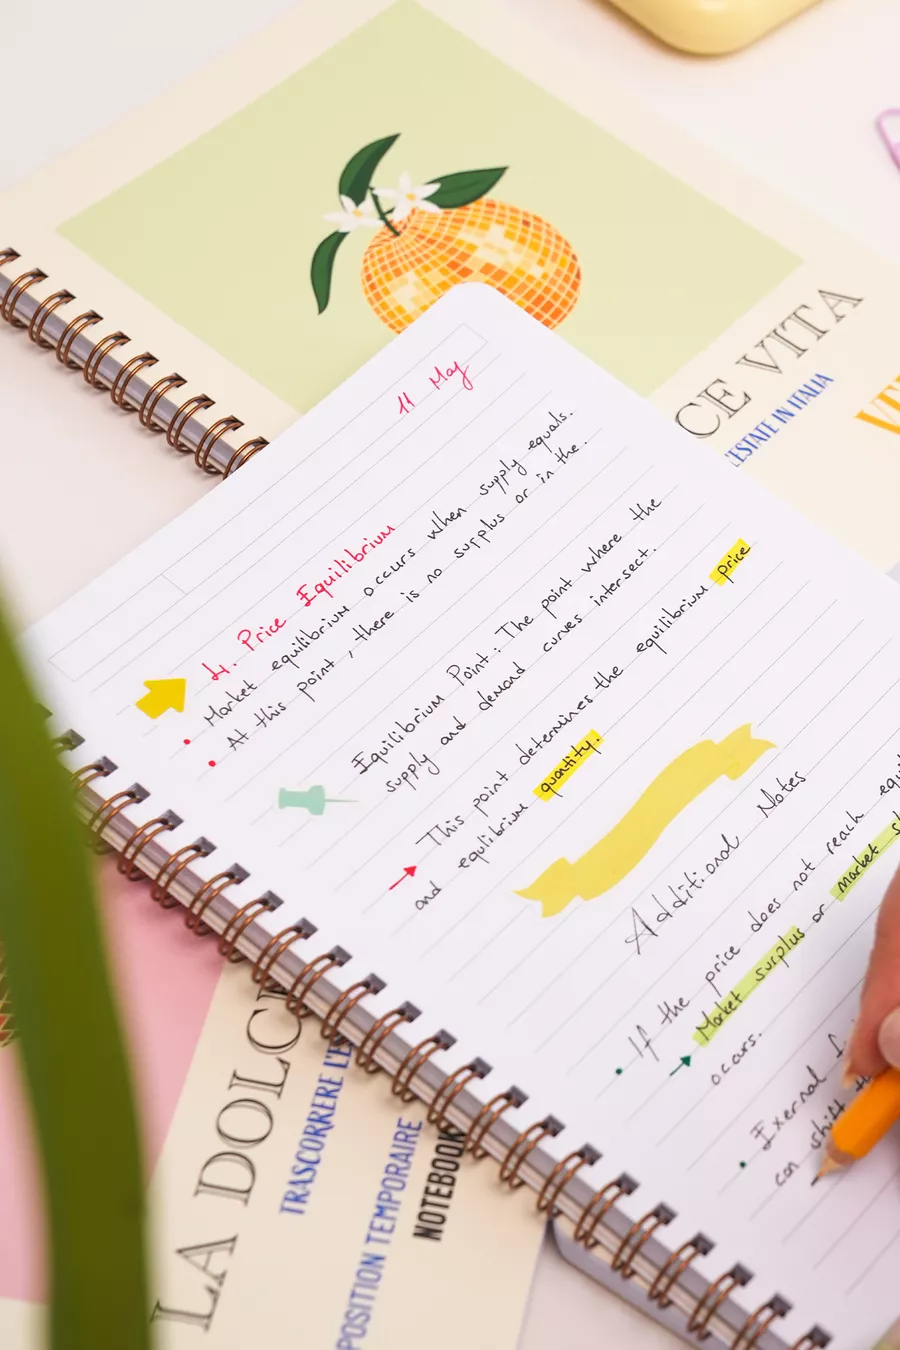 CE VITA
L'ESTATE IN ITALIA
11 May
4. Price Equilibrium
Market equilibrium occurs when supply equals.
At this point, there is no surplus or in the.
Equilibrium Point: The point where the
supply and demand curves intersect.
This point determines the equilibrium price
and equlibrium quantity.
Additional Notes
If the price does not reach
Market surplus or market
occurs.
Exernal
can shift
LA DOLCE
TRASCORRERE
POSITION TEMPORAIRE
NOTEBOOK